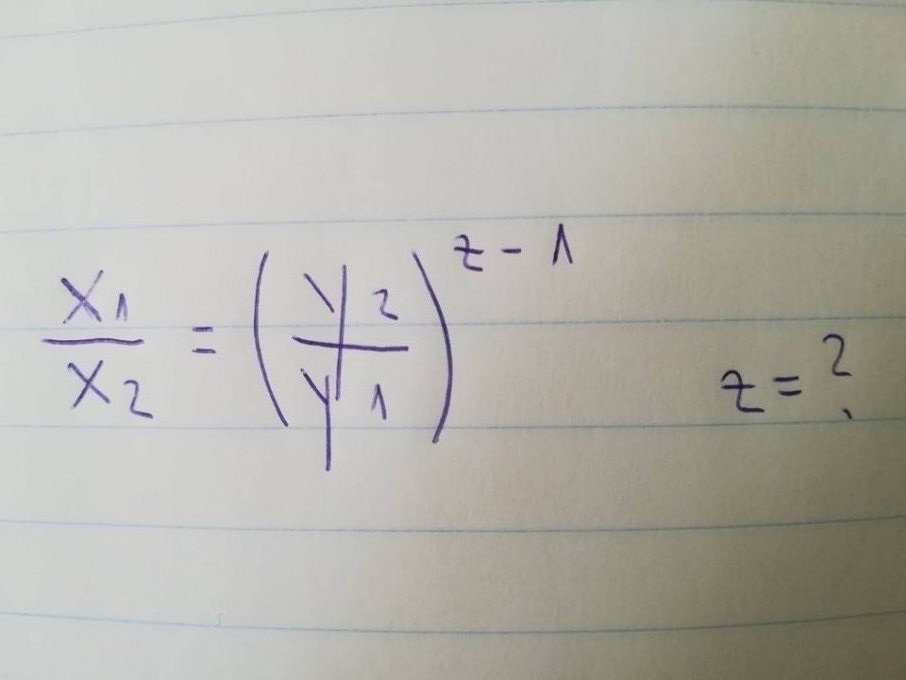 x₁/x₂ = (y₂/y₁)^(z-1)
z = ?